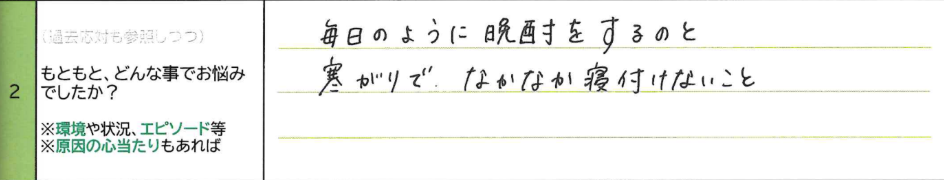 2
(過去応対も参照しつつ)
もともと、どんな事でお悩み
でしたか？
※環境や状況、エピソード等
※原因の心当たりもあれば
毎日のように晩酎をするのと
寒がりで、なかなか寝付けないこと